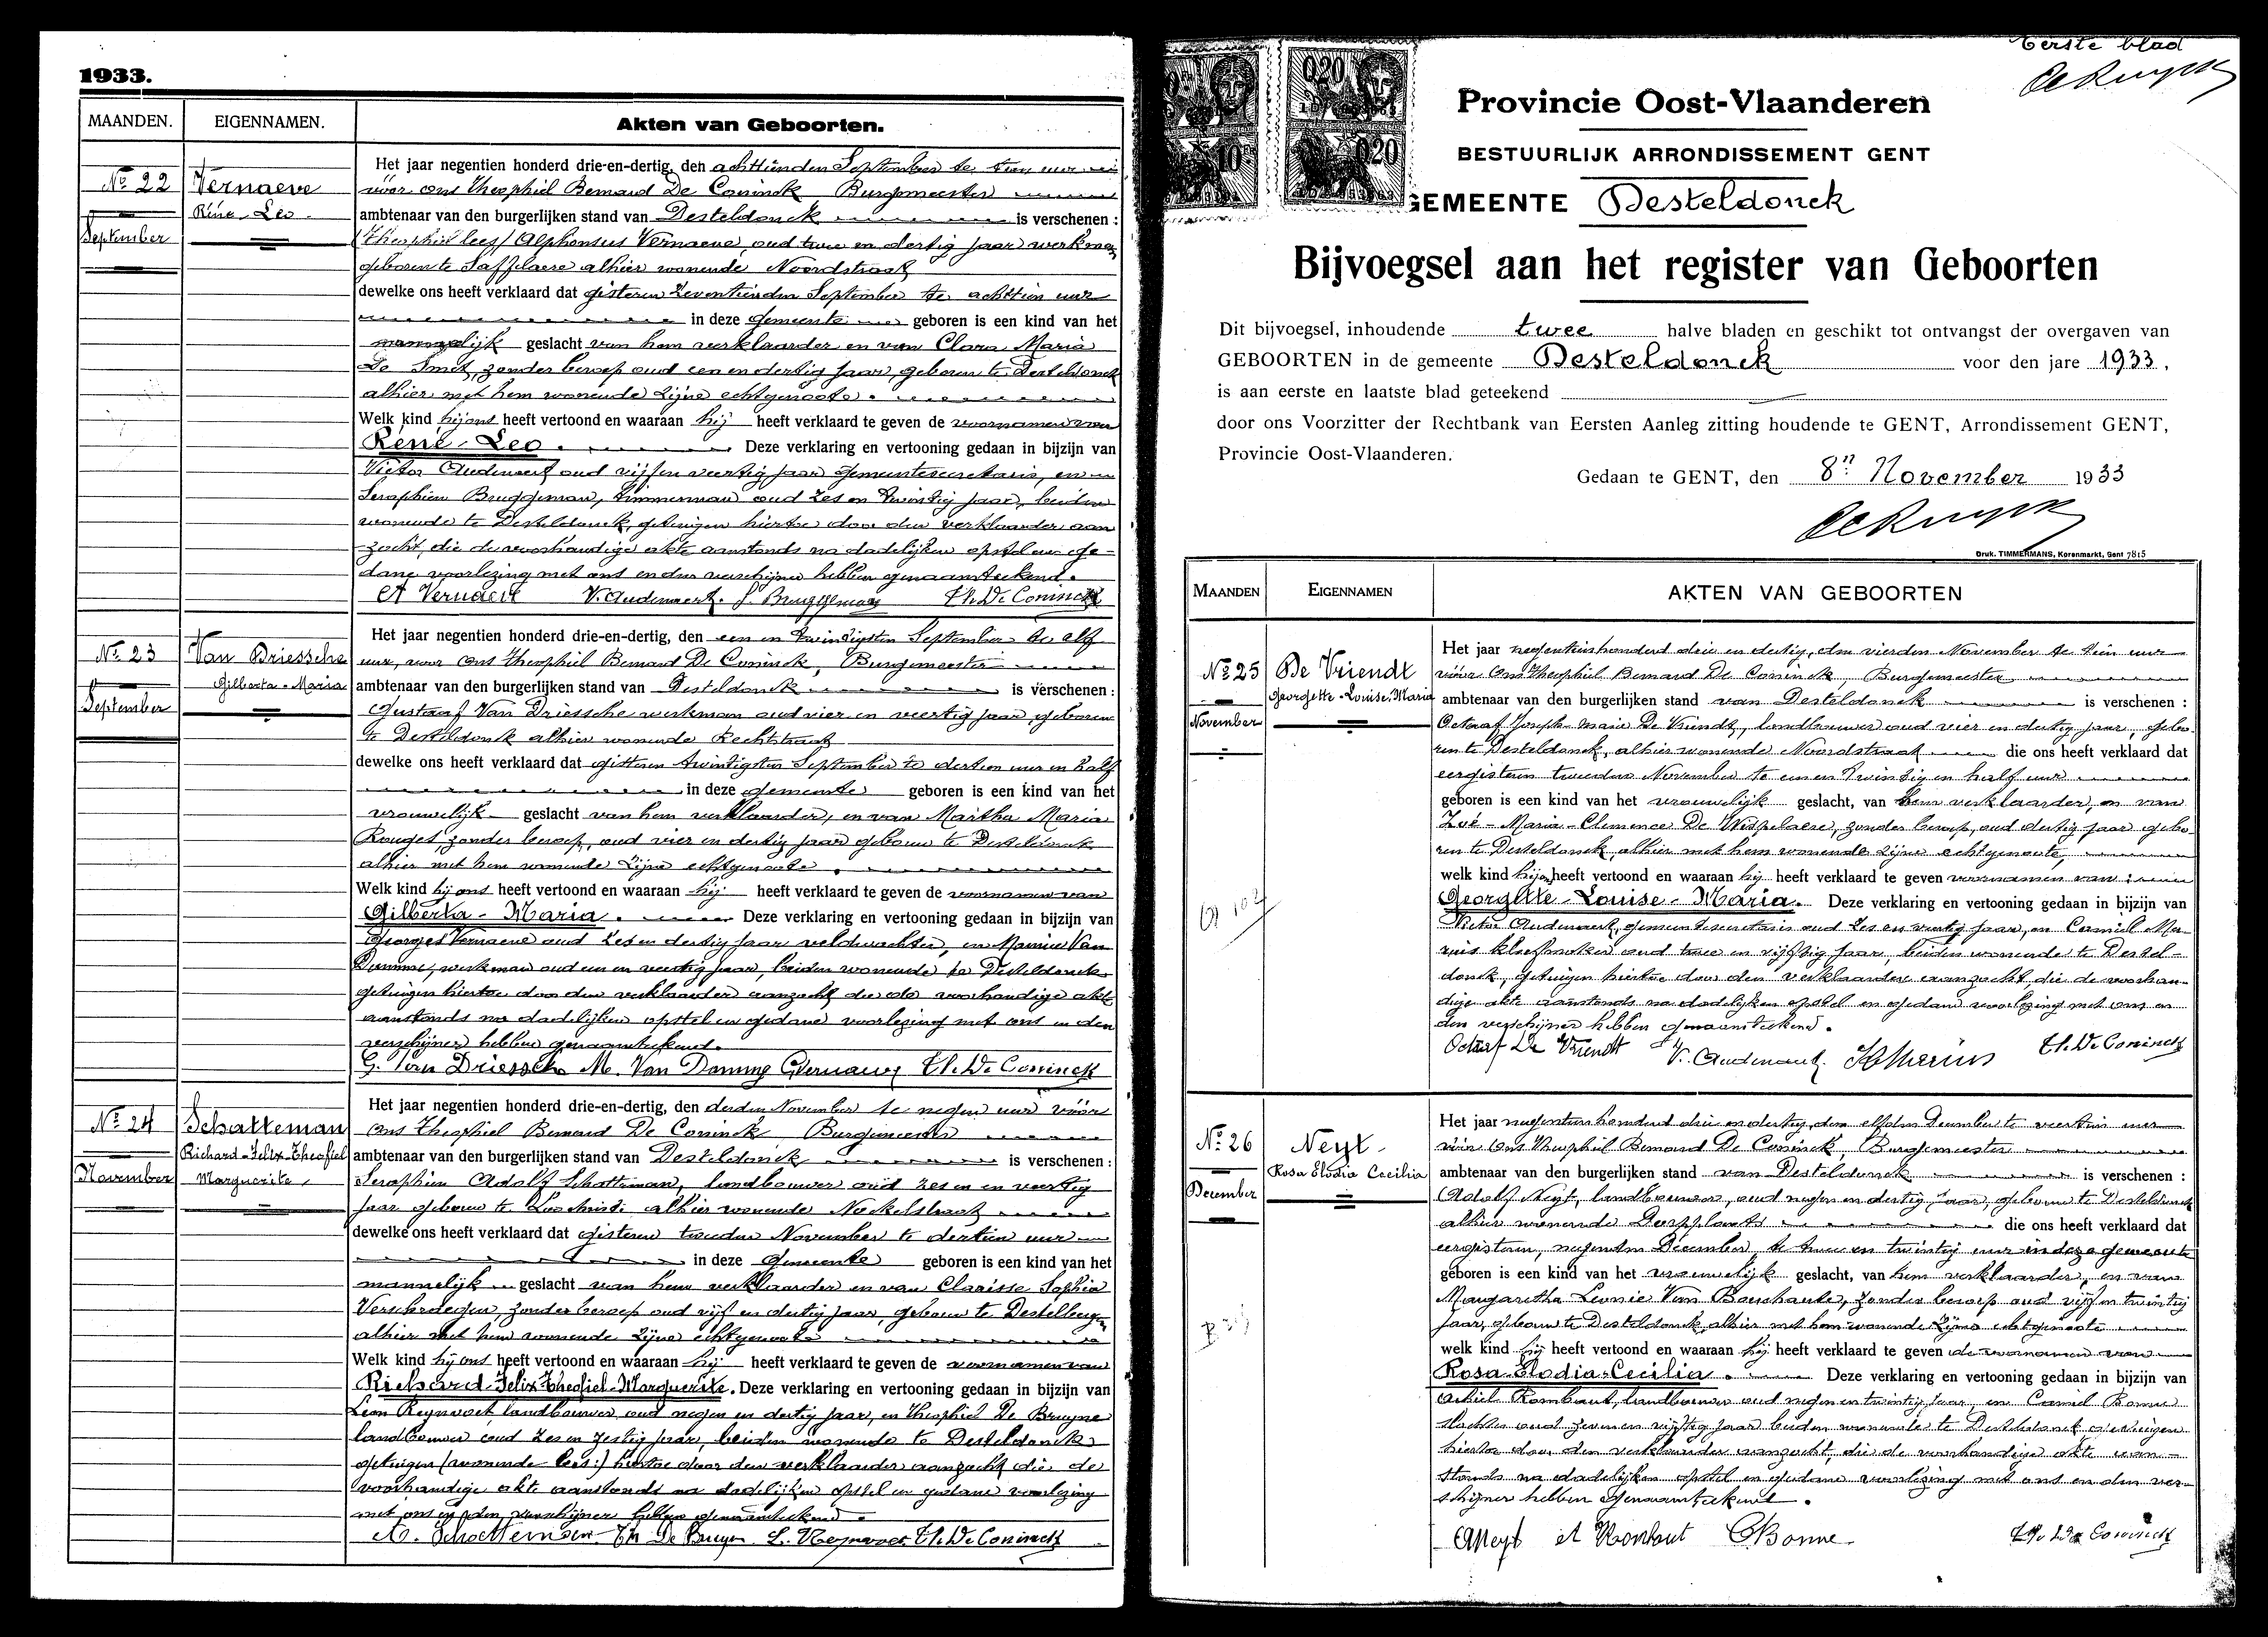 1933.
MAANDEN.
EIGENNAMEN.
Akten van Geboorten.
No 22
September
Vernaeve
René-Leo
Het jaar negentien honderd drie-en-dertig, den achttienden September te tien uur
vóór ons Theophiel Bernard De Coninck Burgemeester
ambtenaar van den burgerlijken stand van Desteldonck is verschenen :
Theophiel lees/ Alphonsus Vernaeve, oud twee en dertig jaar werkman
geboren te Saffelaere alhier wonende Noordstraat
dewelke ons heeft verklaard dat gisteren zeventienden September te achttien uur
in deze gemeente geboren is een kind van het
mannelijk geslacht van hem verklaarder en van Clara Maria
De Smet, zonder beroep oud een en dertig jaar, geboren te Desteldonck
alhier met hem wonende zijne echtgenoote.
Welk kind hij ons heeft vertoond en waaraan hij heeft verklaard te geven de voornamen van
René-Leo. Deze verklaring en vertooning gedaan in bijzijn van
Victor Audenaert oud vijf en veertig jaar gemeentesecretaris, en
Seraphien Bruggeman, timmerman oud zes en twintig jaar, beiden
wonende te Desteldonck, getuigen hiertoe door den verklaarder aan
zocht, die de voorhandige akte aanstonds na dadelijken opstel en ge-
dane voorlezing met ons en den verschijner hebben genaamteekend.
A Vernaeve V. Audenaert. S. Bruggeman Th. De Coninck
No 23
September
Van Driessche
Gilberta-Maria
Het jaar negentien honderd drie-en-dertig, den een en twintigsten September te elf
uur, voor ons Theophiel Bernard De Coninck, Burgemeester
ambtenaar van den burgerlijken stand van Desteldonck is verschenen :
Gustaaf Van Driessche werkman oud vier en veertig jaar, geboren
te Desteldonck alhier wonende Rechtstraat
dewelke ons heeft verklaard dat gisteren twintigsten September te dertien uur en half
in deze gemeente geboren is een kind van het
vrouwelijk geslacht van hem verklaarder, en van Martha Maria
Rouget, zonder beroep, oud vier en dertig jaar geboren te Desteldonck
alhier met hem wonende zijne echtgenoote.
Welk kind hij ons heeft vertoond en waaraan hij heeft verklaard te geven de voornamen van
Gilberta-Maria. Deze verklaring en vertooning gedaan in bijzijn van
Georges Vernaeve oud zes en dertig jaar veldwachter, en Maurice Van
Damme, werkman oud een en veertig jaar, beiden wonende te Desteldonck
getuigen hiertoe door den verklaarder aanzocht die de voorhandige akte
aanstonds na dadelijken opstel en gedane voorlezing met ons en den
verschijner hebben genaamteekend.
G. Van Driessche M. Van Damme G Vernaeve Th. De Coninck
No 24
November
Schatteman
Richard-Felix-Theofiel
Marguerite
Het jaar negentien honderd drie-en-dertig, den derden November te negen uur vóór
ons Theophiel Bernard De Coninck Burgemeester
ambtenaar van den burgerlijken stand van Desteldonck is verschenen :
Seraphien Adolf Schatteman, landbouwer oud zes en veertig
jaar geboren te Loochristi alhier wonende
dewelke ons heeft verklaard dat gisteren tweeden November te dertien uur
in deze gemeente geboren is een kind van het
mannelijk geslacht van hem verklaarder en van Clarisse Sophia
Verschraegen, zonder beroep oud vijf en dertig jaar, geboren te Destelbergen
alhier met hem wonende zijne echtgenoote
Welk kind hij ons heeft vertoond en waaraan hij heeft verklaard te geven de voornamen van
Richard-Felix-Theofiel-Marguerite. Deze verklaring en vertooning gedaan in bijzijn van
Leon Reynvoet, landbouwer, oud negen en dertig jaar, en Theophiel De Bruyne
landbouwer oud zes en zestig jaar, beiden wonende te Desteldonck
getuigen (wonende lees:) hiertoe door den verklaarder aanzocht die de
voorhandige akte aanstonds na dadelijken opstel en gedane voorlezing
met ons en den verschijner hebben genaamteekend.
A. Schatteman Th De Bruyne L. Reynvoet Th. De Coninck
Eerste blad
De Ruyck
Provincie Oost-Vlaanderen
BESTUURLIJK ARRONDISSEMENT GENT
GEMEENTE Desteldonck
Bijvoegsel aan het register van Geboorten
Dit bijvoegsel, inhoudende twee halve bladen en geschikt tot ontvangst der overgaven van
GEBOORTEN in de gemeente Desteldonck voor den jare 1933,
is aan eerste en laatste blad geteekend
door ons Voorzitter der Rechtbank van Eersten Aanleg zitting houdende te GENT, Arrondissement GENT,
Provincie Oost-Vlaanderen.
Gedaan te GENT, den 8n November 1933
De Ruyck
Druk. TIMMERMANS, Korenmarkt, Gent 7815
MAANDEN
EIGENNAMEN
AKTEN VAN GEBOORTEN
No 25
November
De Vriendt
Georgette-Louise-Maria
Het jaar negentienhonderd drie en dertig, den vierden November te tien uur
vóór ons Theophiel Bernard De Coninck, Burgemeester
ambtenaar van den burgerlijken stand van Desteldonck is verschenen :
Octaaf Joseph-Marie De Vriendt, landbouwer oud vier en dertig jaar, gebo-
ren te Desteldonck, alhier wonende Noordstraat die ons heeft verklaard dat
eergisteren tweeden November te een en twintig en half uur
geboren is een kind van het vrouwelijk geslacht, van hem verklaarder, en van
Zoé-Maria-Clemence De Wispelaere, zonder beroep, oud dertig jaar gebo-
ren te Desteldonck, alhier met hem wonende zijne echtgenoote,
welk kind hij ons heeft vertoond en waaraan hij heeft verklaard te geven voornamen van :
Georgette-Louise-Maria. Deze verklaring en vertooning gedaan in bijzijn van
Victor Audenaert, gemeentesecretaris oud zes en veertig jaar, en Camiel Me-
rius oud twee en vijftig jaar, beiden wonende te Destel-
donck, getuigen hiertoe door den verklaarder aanzocht, die de voorhan-
dige akte aanstonds na dadelijken opstel en gedane voorlezing met ons en
den verschijner hebben genaamteekend.
Octaaf De Vriendt V. Audenaert. Th. De Coninck
No 26
December
Neyt
Rosa Elodia Cecilia
Het jaar negentienhonderd drie en dertig, den elfden December te veertien uur
vóór ons Theophiel Bernard De Coninck, Burgemeester
ambtenaar van den burgerlijken stand van Desteldonck is verschenen :
Adolf Neyt, landbouwer, oud negen en dertig jaar, geboren te Desteldonck
alhier wonende Dorpplaats die ons heeft verklaard dat
eergisteren, negenden December te twee en twintig uur in deze gemeente
geboren is een kind van het vrouwelijk geslacht, van hem verklaarder, en van
Margaretha Leonie Van Bouchaute, zonder beroep oud vijf en twintig
jaar, geboren te Desteldonck alhier met hem wonende zijne echtgenoote
welk kind hij heeft vertoond en waaraan hij heeft verklaard te geven de voornamen van
Rosa-Elodia-Cecilia. Deze verklaring en vertooning gedaan in bijzijn van
Achiel Rombaut, landbouwer oud negen en twintig jaar, en Camiel Bonne
slachter oud zeven en vijftig jaar beiden wonende te Desteldonck getuigen
hiertoe door den verklaarder aanzocht, die de voorhandige akte aan-
stonds na dadelijken opstel en gedane voorlezing met ons en den ver-
schijner hebben genaamteekend.
A Neyt A Rombaut C Bonne Th. De Coninck